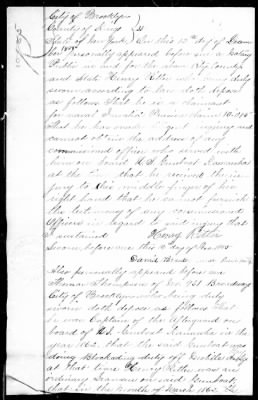 City of Brooklyn
County of Kings } ss
State of New York } On this 10th day of
personally appeared before me a Notary
Public in and for the above City County
and State Henry Ritter who being duly
sworn according to law doth depose
as follows That he is a claimant
for naval Invalid Pension
That he has made and
cannot obtain the address of any
commissioned officer who served with
him on board U.S. Gunboat Kanawha
at the time that he received the in-
jury to the middle finger of his
right hand that he can not furnish
the testimony of any commissioned
Officers in regard to said injury that
he sustained Henry Ritter
Sworn before me this 10th day of
Also personally appeared before me
Thomas Thompson of No. 731 Broadway
City of Brooklyn who being duly
sworn doth depose as follows That
he was Captain of the Afterguard on
board of U.S. Gunboat Kanawha in the
year 1862 that the said Gunboat was
doing Blockading duty off Mobile
at that time Henry Ritter was an
ordinary Seaman on said Gunboat
that in the month of 1862